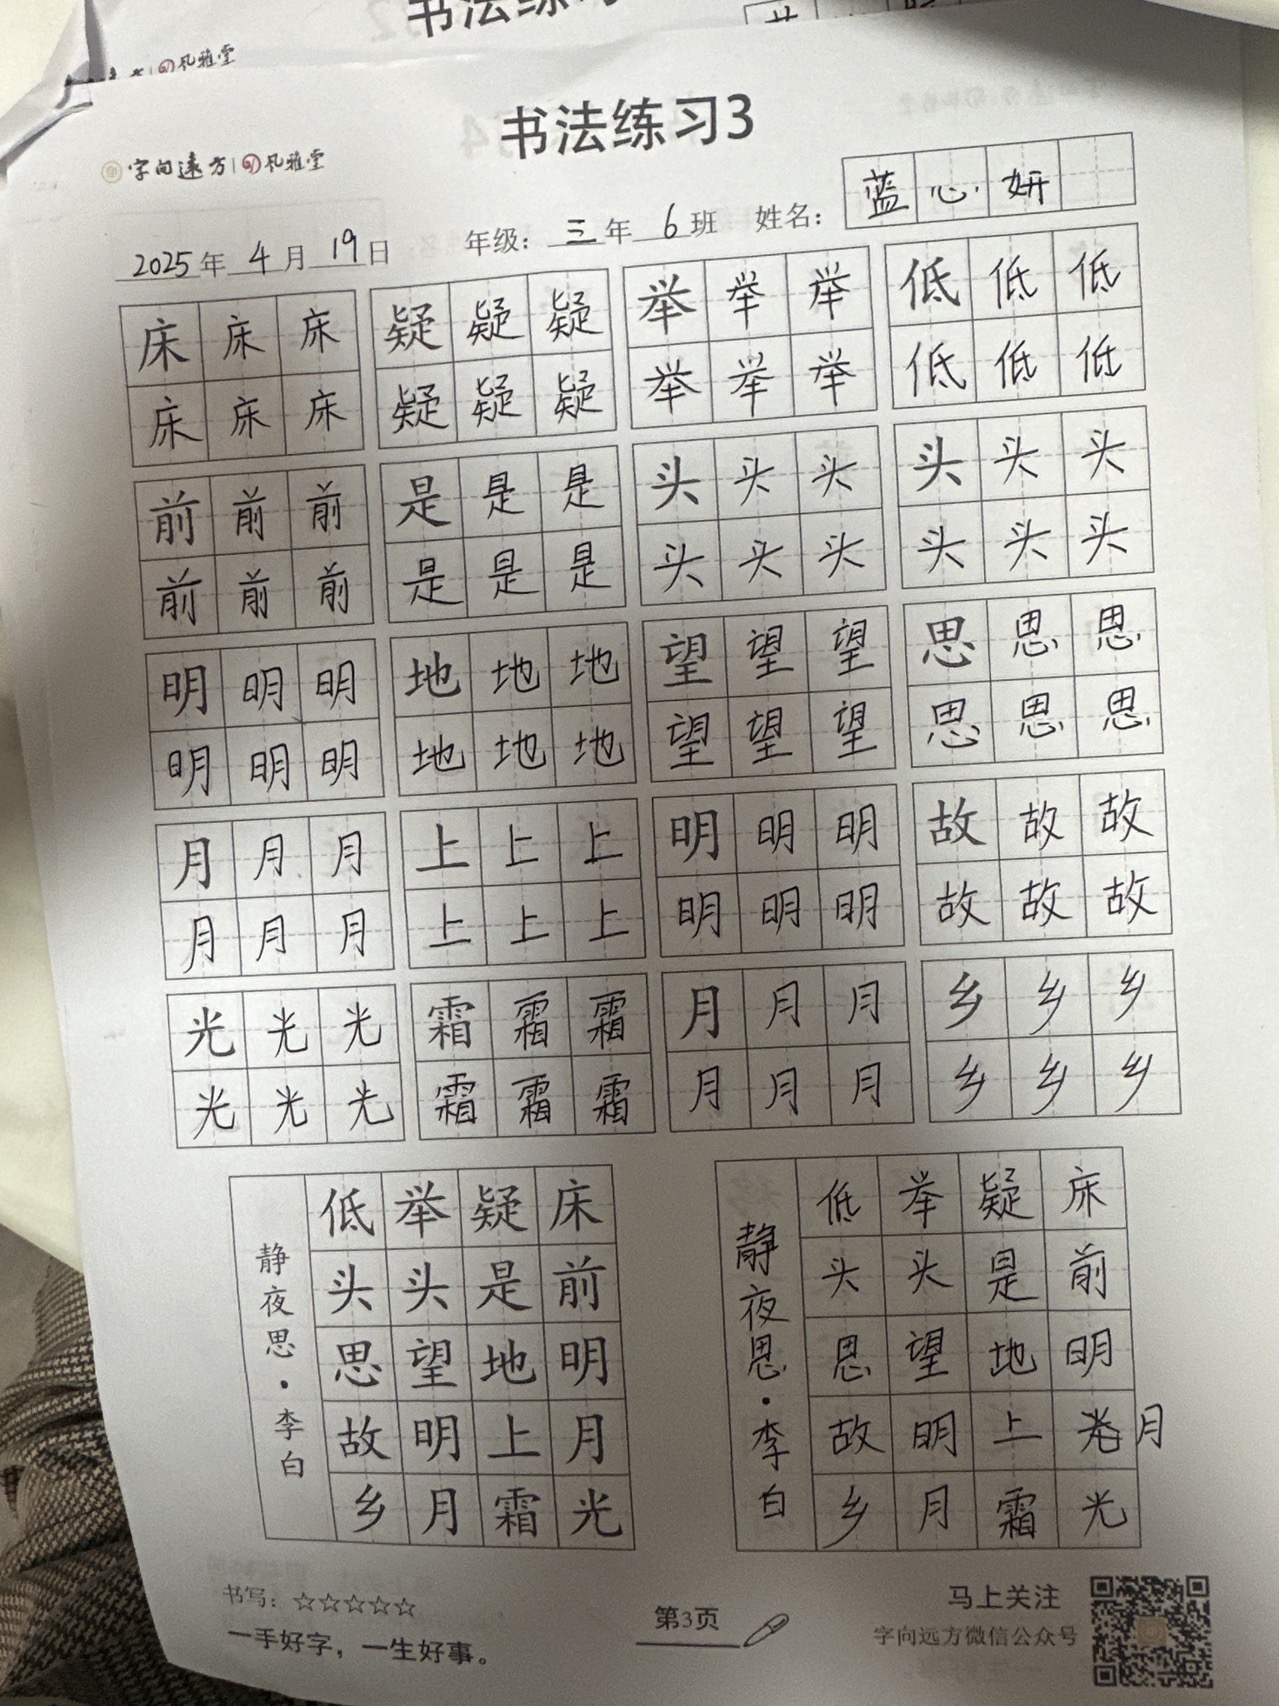 书法练习
风雅堂
书法练习3
字向远方 | 风雅堂
2025年4月19日 年级：三年6班 姓名：蓝心妍
床床床 疑疑疑 举举举 低低低
床床床 疑疑疑 举举举 低低低
前前前 是是是 头头头 头头头
前前前 是是是 头头头 头头头
明明明 地地地 望望望 思思思
明明明 地地地 望望望 思思思
月月月 上上上 明明明 故故故
月月月 上上上 明明明 故故故
光光光 霜霜霜 月月月 乡乡乡
光光光 霜霜霜 月月月 乡乡乡
静夜思·李白
床前明月光
疑是地上霜
举头望明月
低头思故乡
静夜思·李白
床前明月光
疑是地上霜
举头望明月
低头思故乡
书写：☆☆☆☆☆
一手好字，一生好事。
第3页
马上关注
字向远方微信公众号